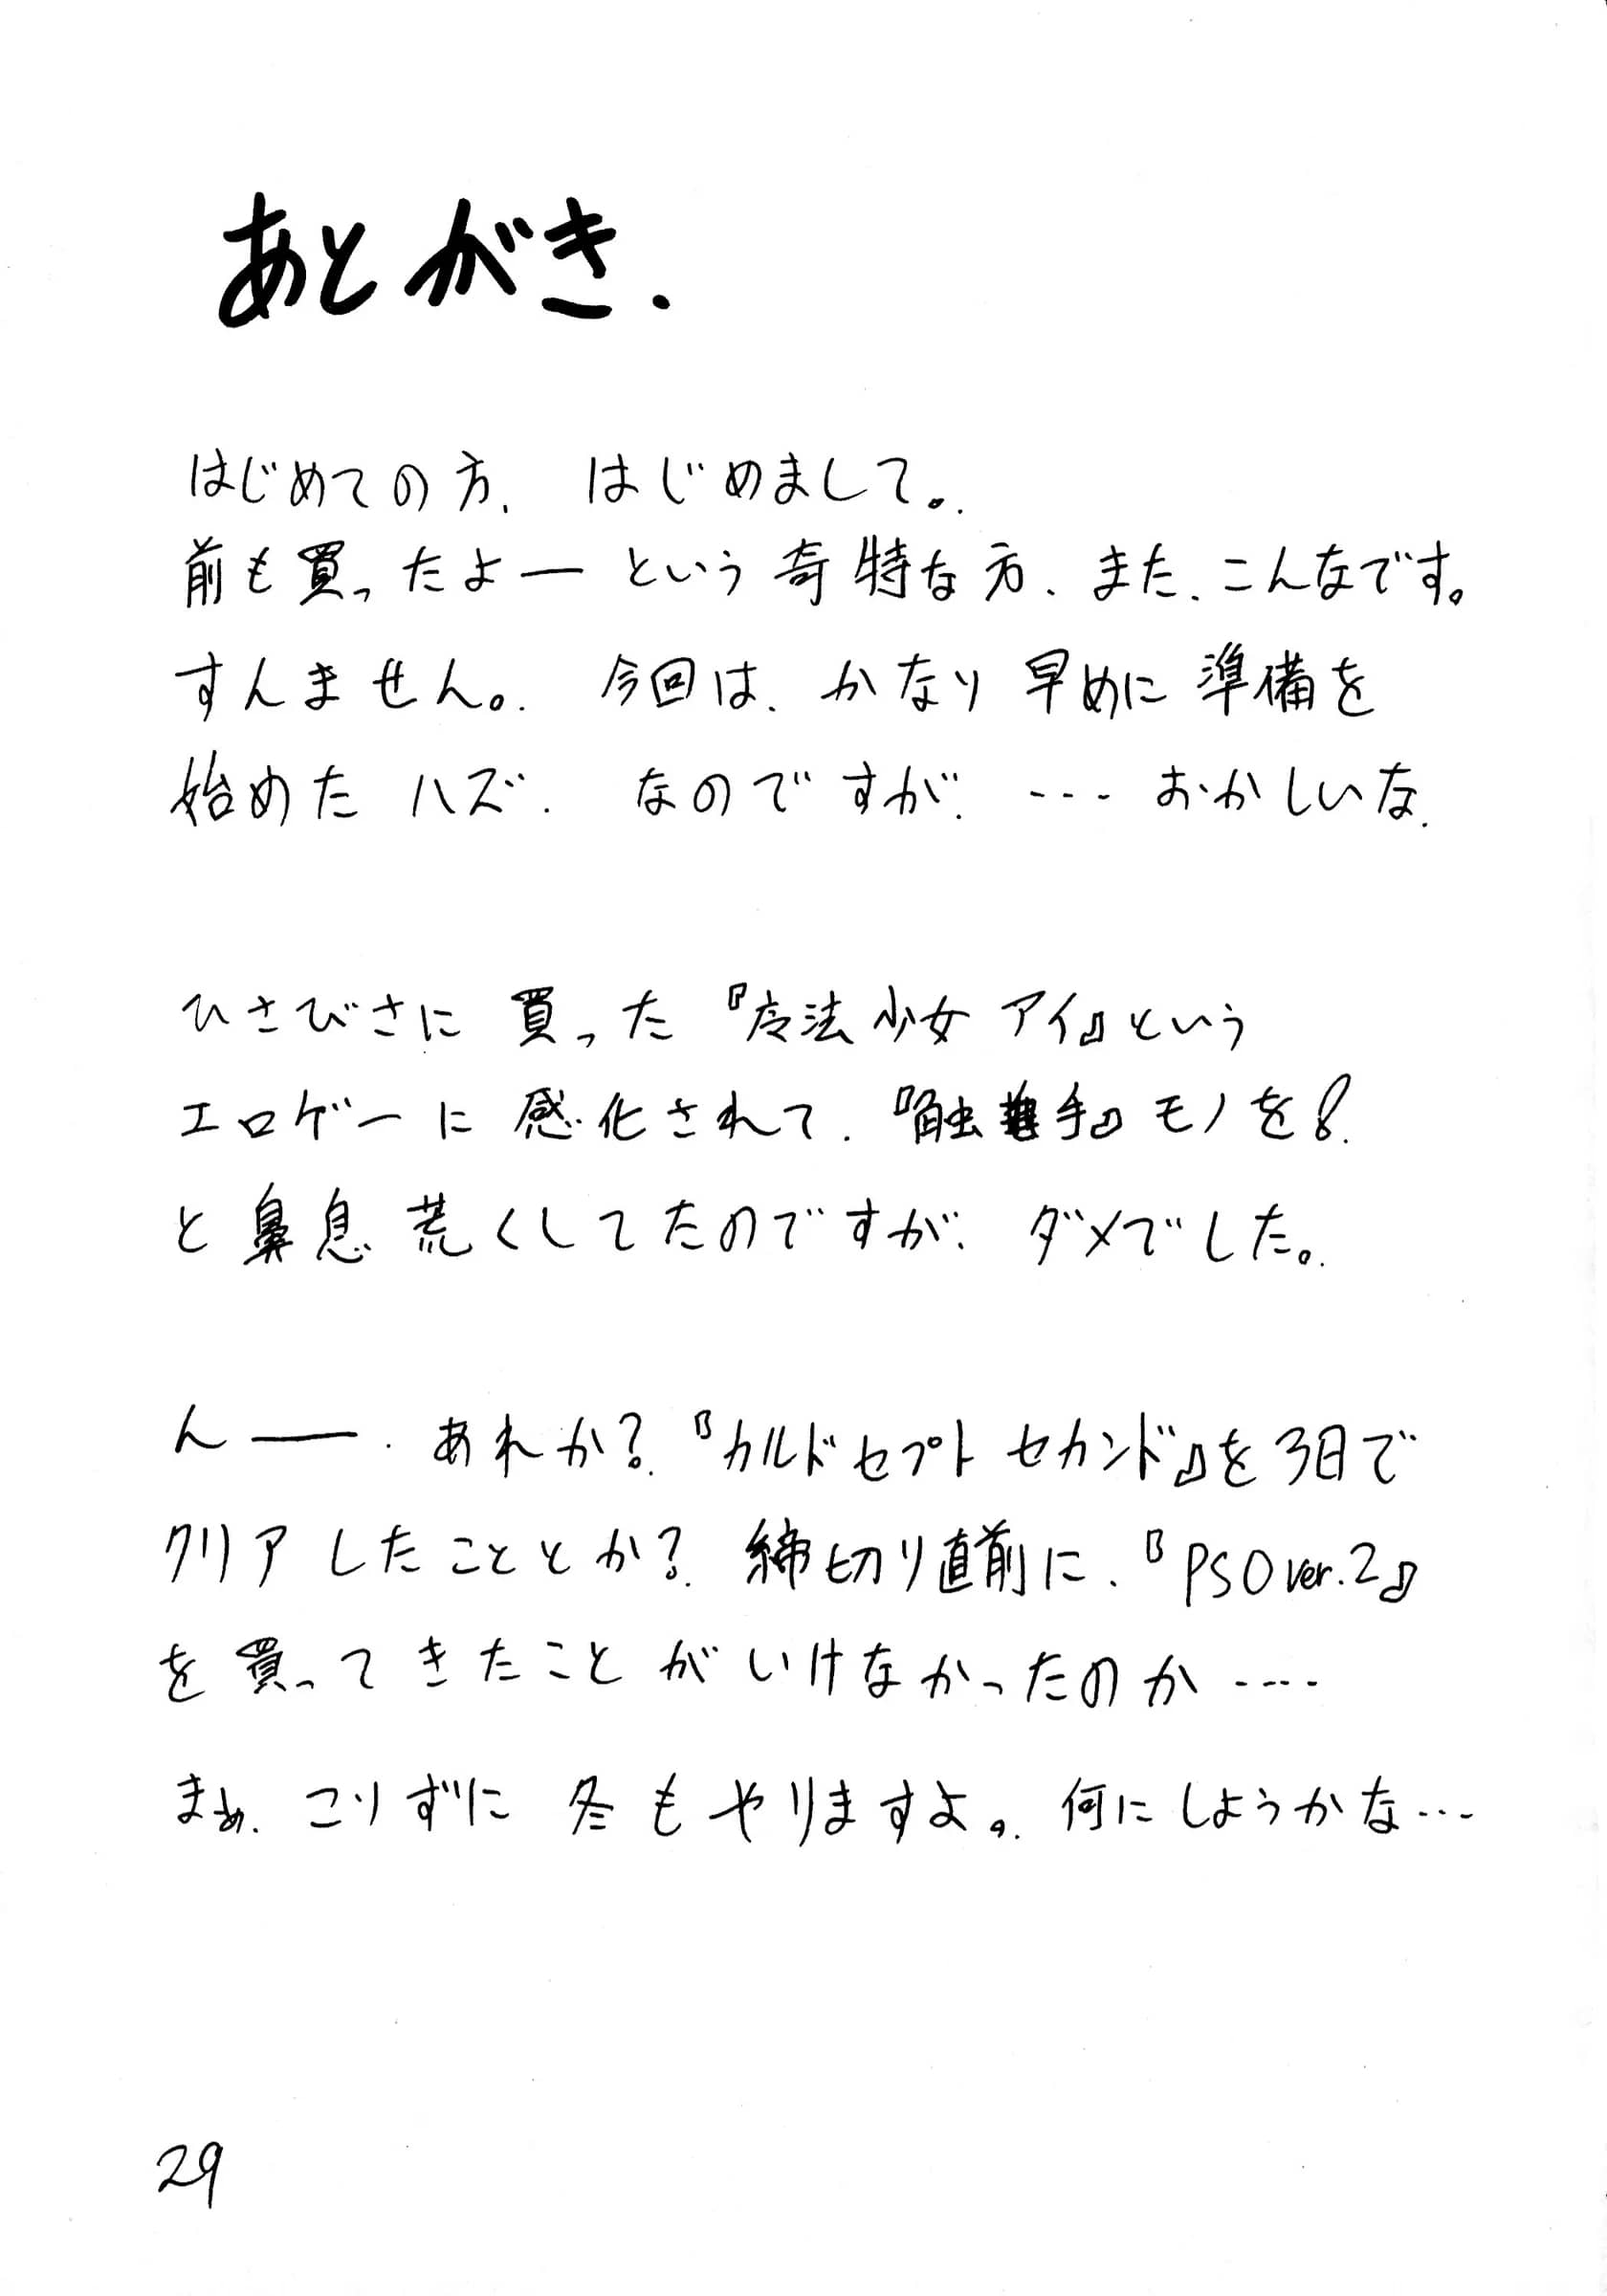 あとがき.
はじめての方、はじめまして。
前も買ったよーという奇特な方、また、こんなです。
すんません。今回は、かなり早めに準備を
始めたハズ、なのですが、…おかしいな、
ひさびさに買った『魔法少女アイ』という
エロゲーに感化されて、『触手』モノを!
と鼻息荒くしてたのですが、ダメでした。
んー、あれか?『カルドセプトセカンド』を3日で
クリアしたこととか?締切り直前に、『PSO ver.2』
を買ってきたことがいけなかったのか‥‥
まぁ、こりずに冬もやりますよ。何にしようかな…
29